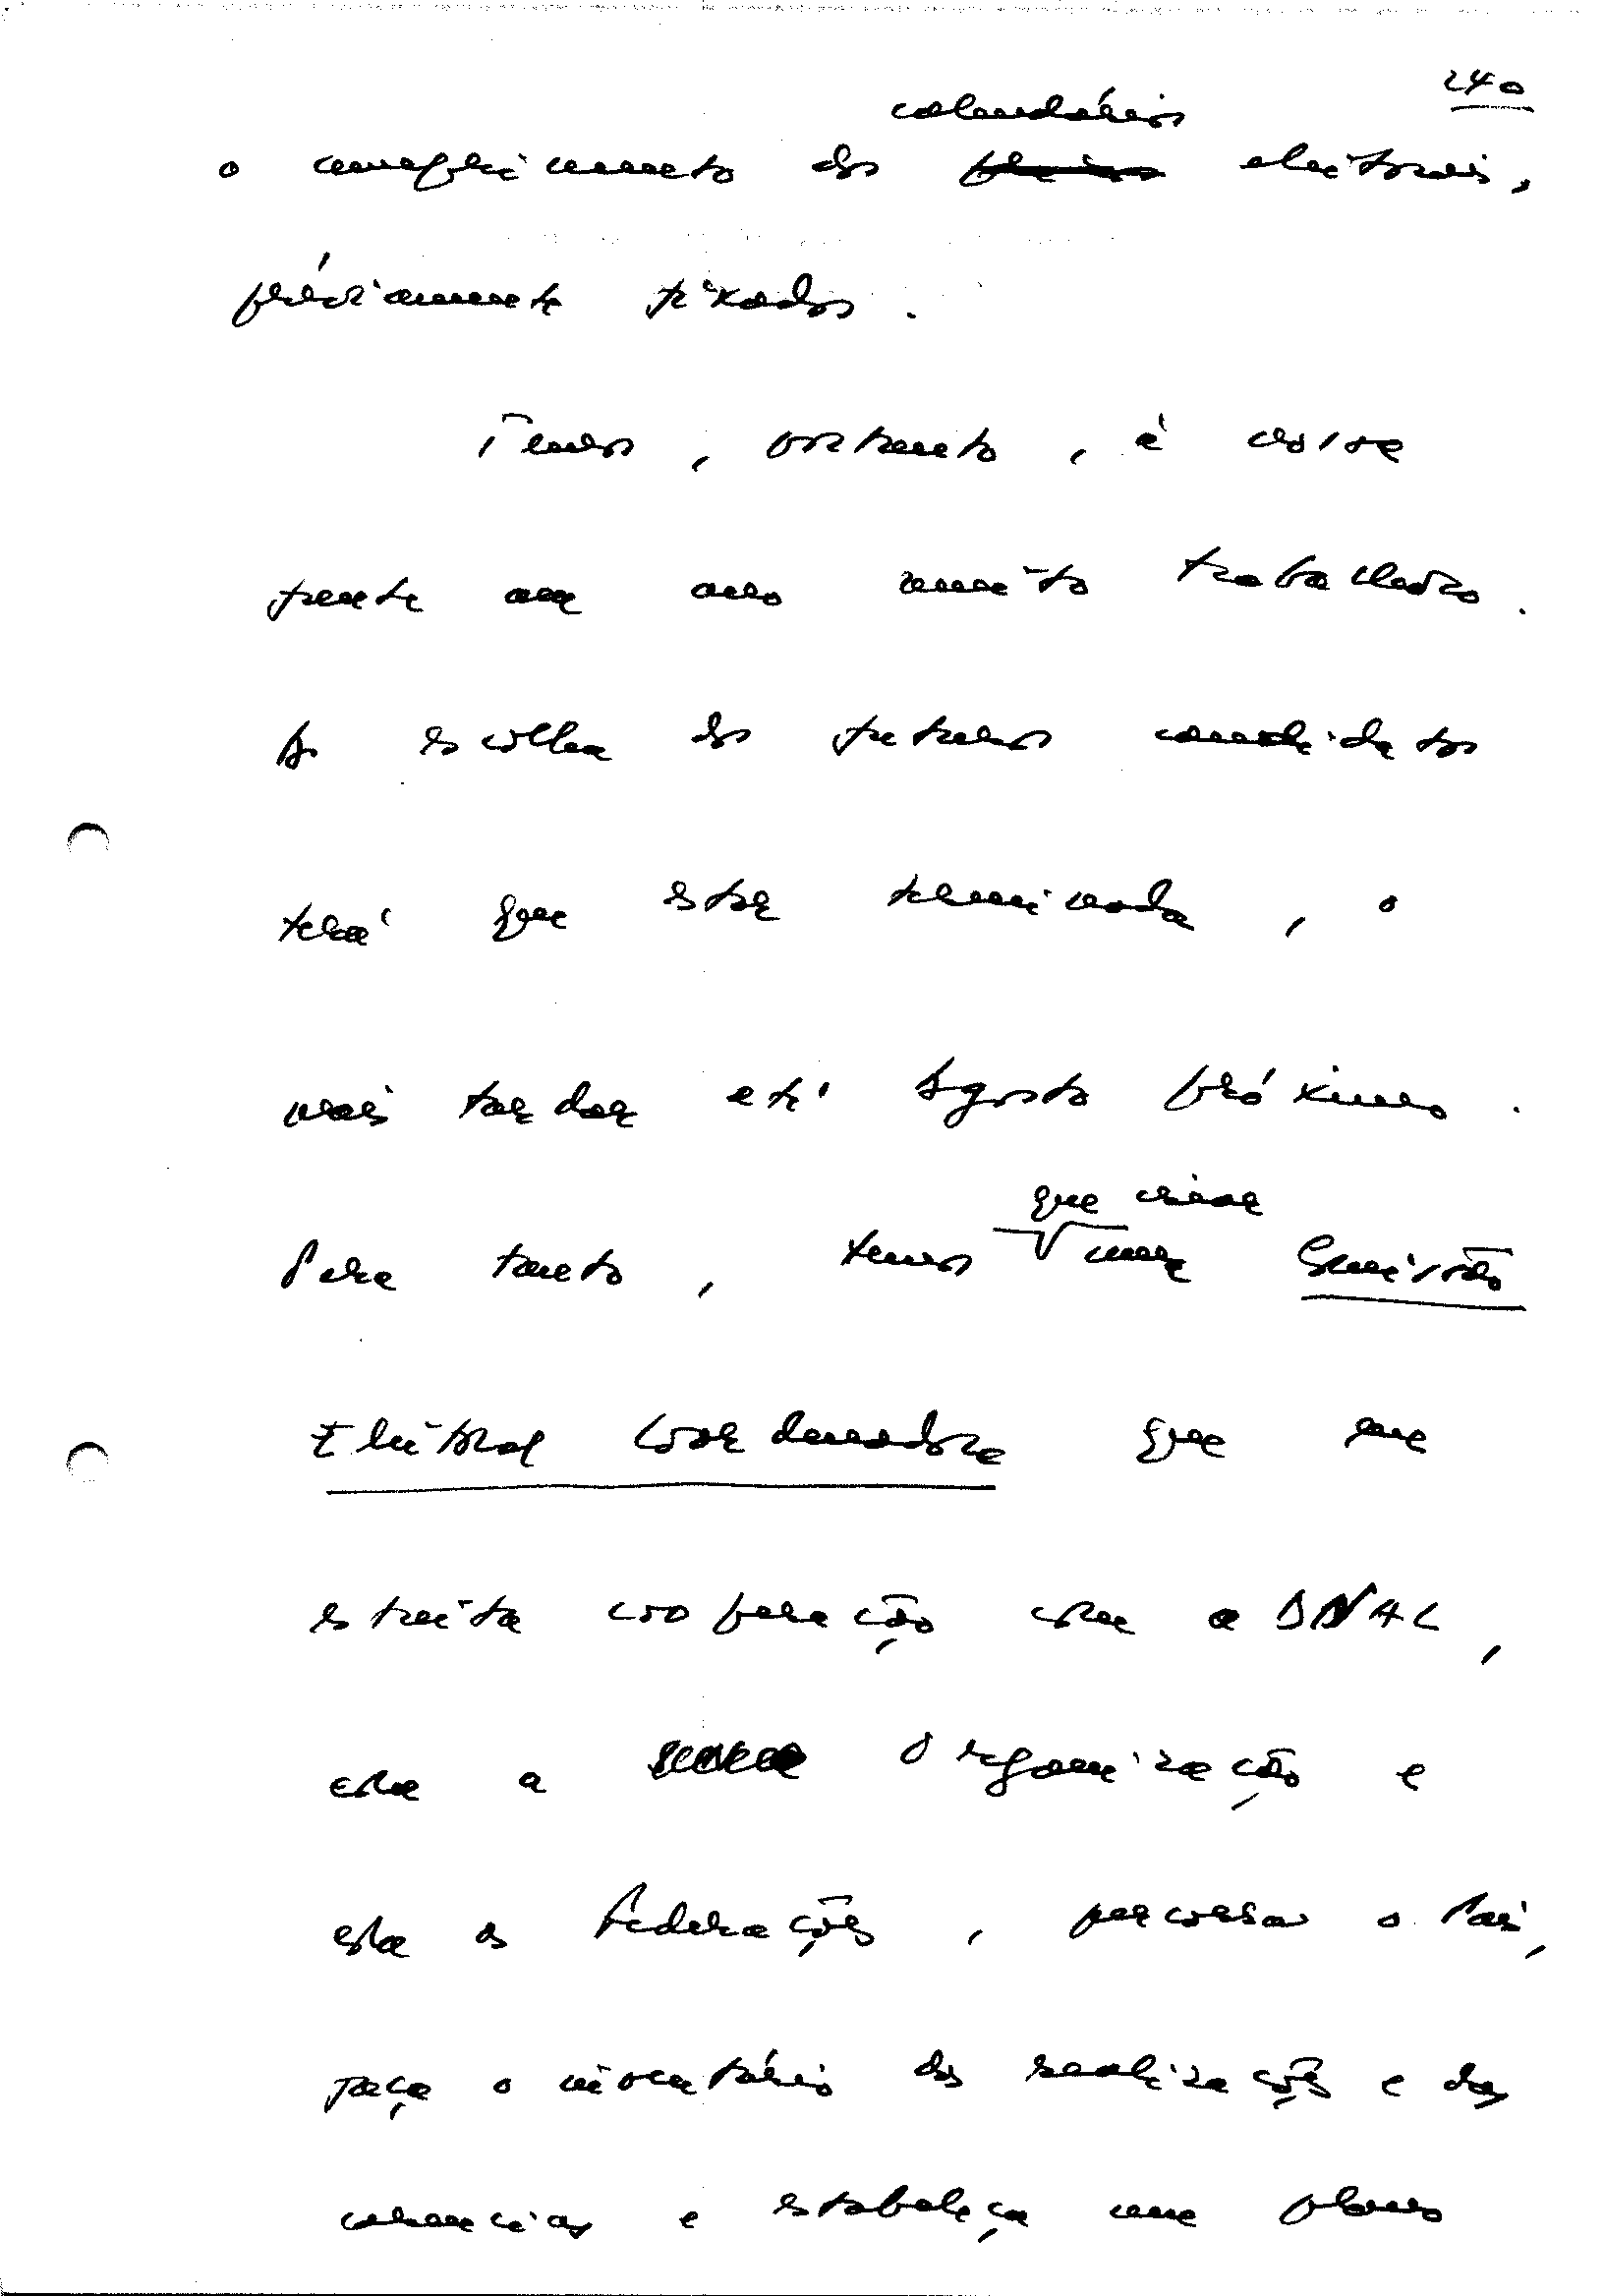 240
calendários
o cumprimento dos eleitorais,
préviamente fixados.
Temos, portanto, à nossa
frente um ano muito trabalhoso.
A escolha dos futuros candidatos
terá que estar terminada, o
mais tardar até Agosto próximo.
que criar
Para tanto, temos uma Comissão
Eleitoral Coordenadora que em
estreita cooperação com a DNAL,
com a Organização e
com as Federações, percorra o País,
faça o inventário das realizações e das
carências e estabeleça um plano